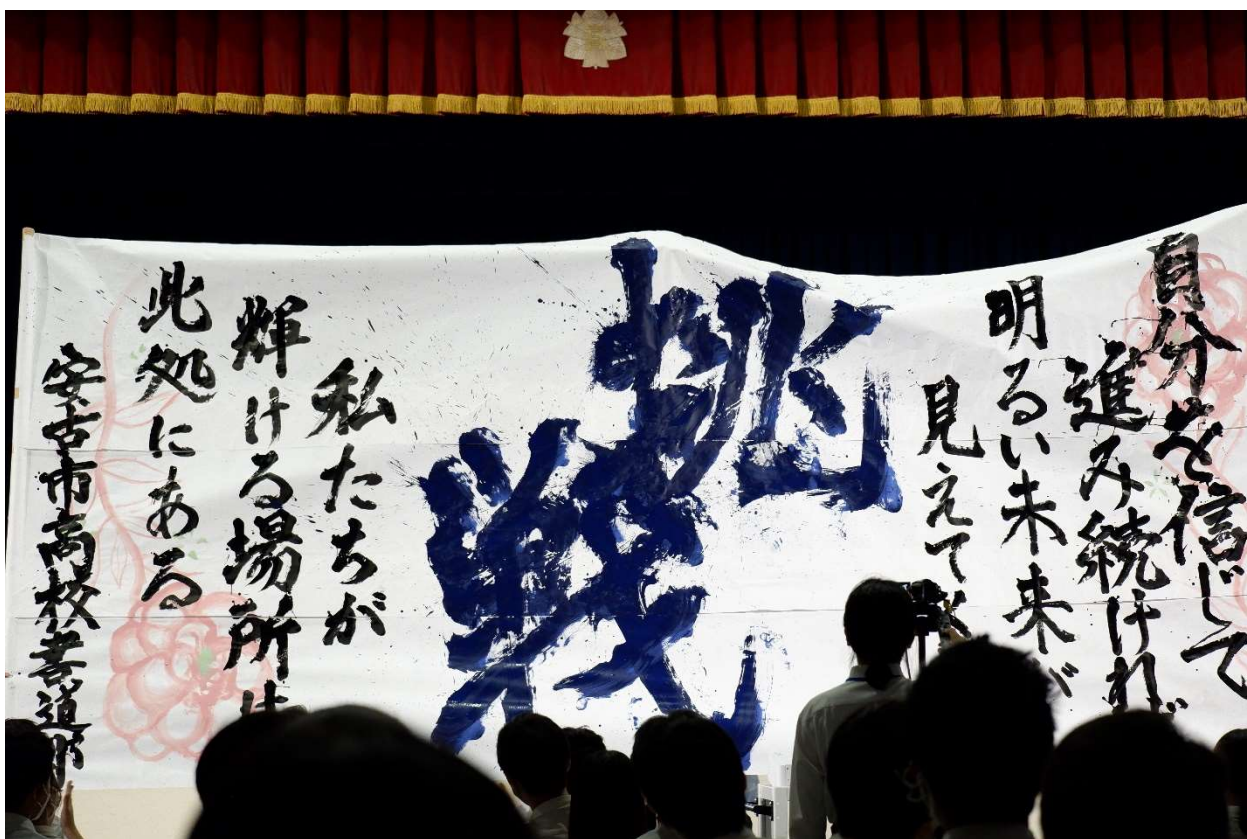 自分を信じて
進み続ければ
明るい未来が
見えて
挑戦
私たちが
輝ける場所は
此処にある
安古市高校書道部